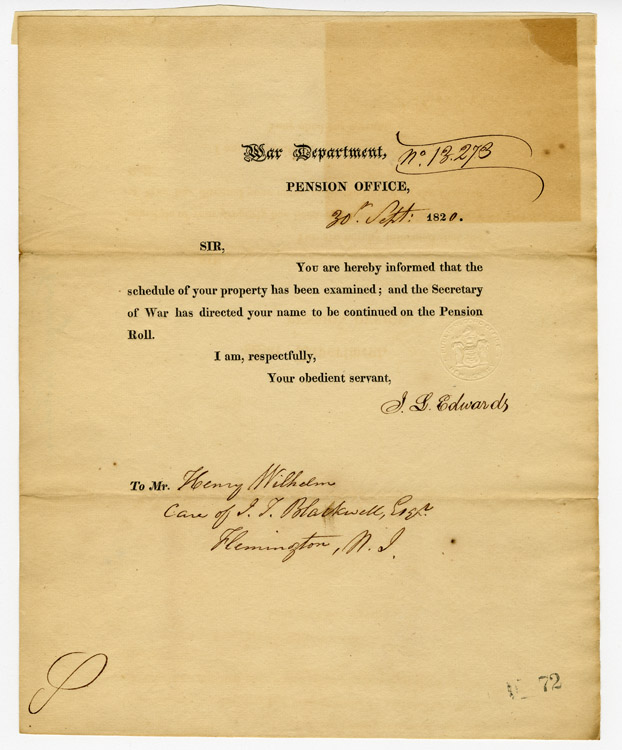 War Department,
No. 13.273
PENSION OFFICE,
30th. Sept: 1820.
SIR,
You are hereby informed that the
schedule of your property has been examined; and the Secretary
of War has directed your name to be continued on the Pension
Roll.
I am, respectfully,
Your obedient servant,
J. L. Edwards
To Mr. Henry Wilhelm
Care of J. T. Blackwell, Esqr.
Flemington, N. J.
72